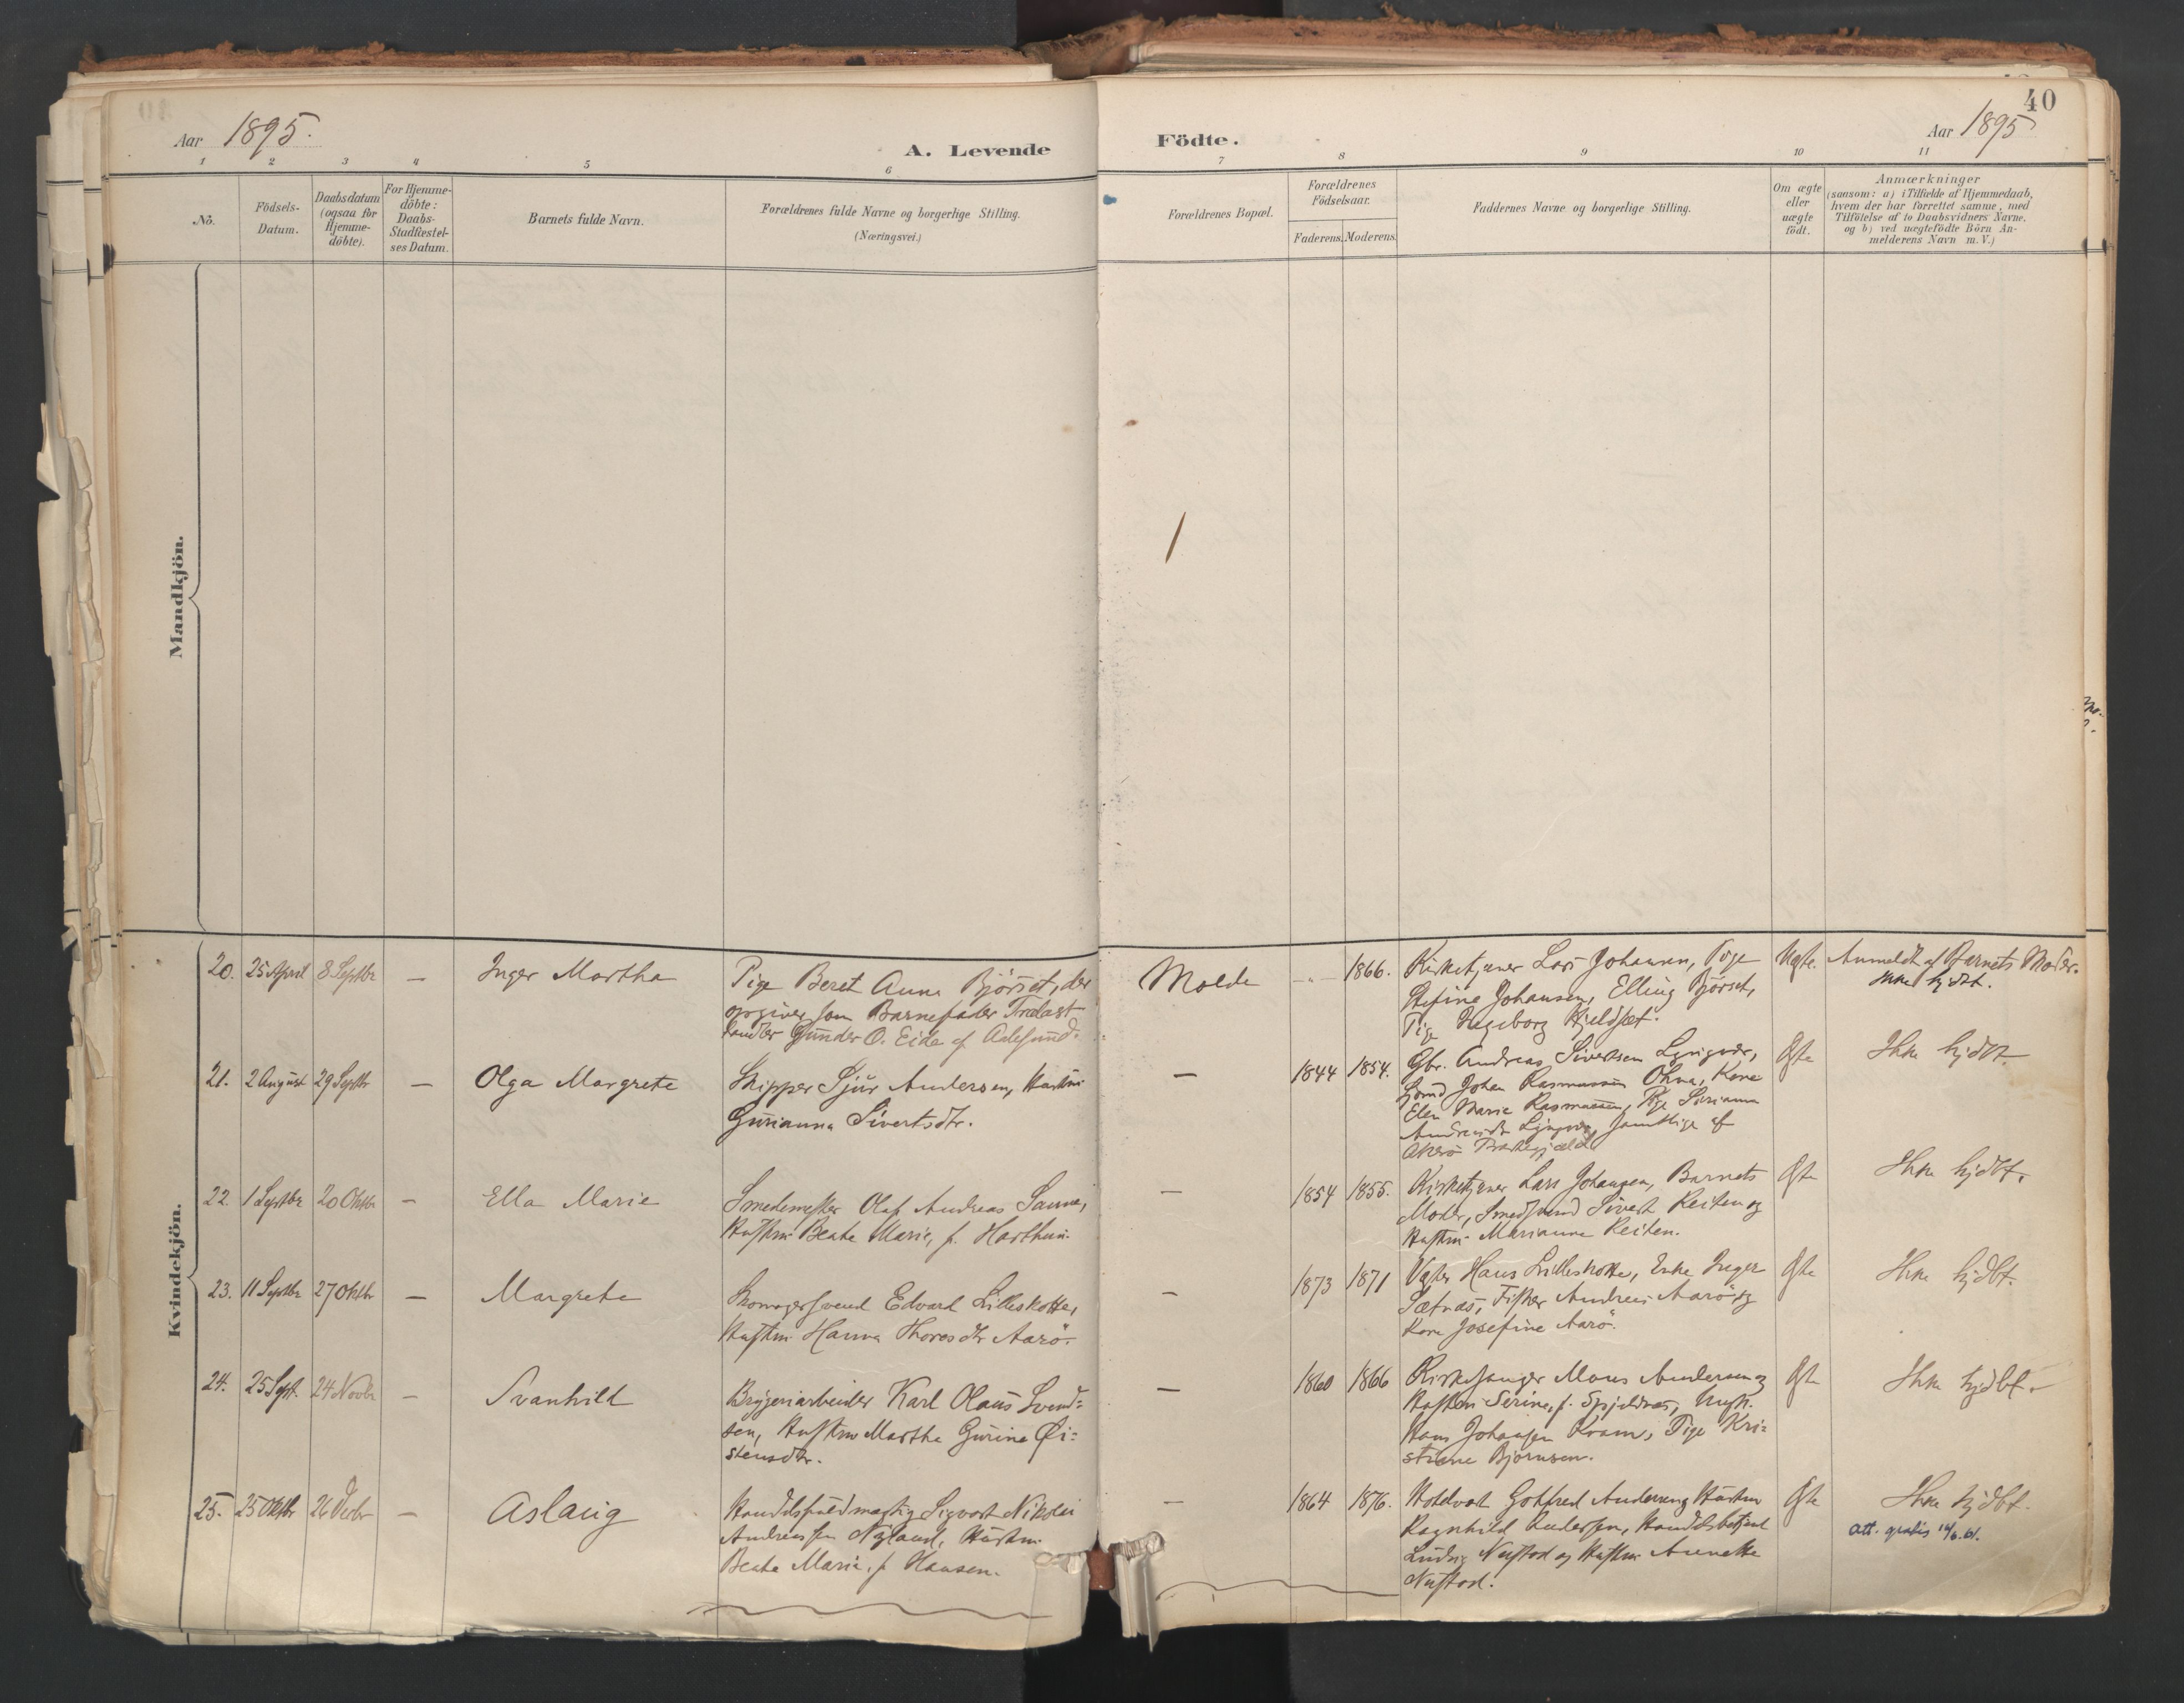 40
Aar 1895.
A. Levende Födte.
Aar 1895
1 2 3 4 5 6 7 8 9 10 11
No.
Födsels-
Datum.
Daabsdatum
(ogsaa for
Hjemme-
döbte).
For Hjemme-
döbte:
Daabs-
Stadfæstel-
ses Datum.
Barnets fulde Navn.
Forældrenes fulde Navne og borgerlige Stilling.
(Næringsvei.)
Forældrenes Bopæl.
Forældrenes
Födselsaar.
Faderens. Moderens.
Faddernes Navne og borgerlige Stilling.
Om ægte
eller
uægte
födt.
Anmærkninger
(saasom: a) i Tilfælde af Hjemmedaab,
hvem der har forrettet samme, med
Tilföielse af to Daabsvidners Navne,
og b) ved uægtefödte Börn An-
melderens Navn m.V.)
Mandkjön.
Kvindekjön.
20. 25 April 8 Septbr — Inger Martha
Pige Beret Anna Björset, der
opgiver som Barnefader Trælast
handler Gunder O. Eide af Aalesund.
Molde
1866.
Kirketjener Lars Johansen, Pige
Stefine Johansen, Elling Björset,
Pige Ingeborg Kjeldset.
Uægte.
Anmeldt af Barnets Moder.
Ikke hjdbt.
21. 2 August 29 Septbr — Olga Margrete
Skipper Sjur Andersen, Hustru
Gurianna Sivertsdtr.
—
1844 1854.
Gbr. Andreas Sivertsen
Johan Rasmussen Ohna, Kone
Elen Marie Rasmussen, Pige
samtlige af
Akerö Præstegjæld
Ægte
Ikke hjdbt.
22. 1 Septbr 20 Oktbr — Ella Marie
Smedemester Olaf Andreas Sanne,
Hustru Beate Marie, f. Harthun.
—
1854 1855.
Kirketjener Lars Johansen, Barnets
Moder, Smedsvend Sivert Reiten og
Hustru Marianne Reiten.
Ægte
Ikke hjdbt.
23. 11 Septbr 27 Oktbr — Margrete
Skomagersvend Edvard Lilleskotte,
Hustru Hanna Thoresdtr Aarö.
—
1873 1871
Vægter Hans Lilleskotte, Enke Inger
Sætnæs, Fisker Andreas Aarö og
Kone Josefine Aarö.
Ægte
Ikke hjdbt.
24. 25 Sept. 24 Novbr — Svanhild
Bryggeriarbeider Karl Olaus Svend-
sen, Hustru Martha Gurine Öi-
stensdtr.
—
1860 1866
Kirkesanger Mons Andersen og
Hustru Serine, f. Spjeldnæs, Ungk.
Hans Johansen Kvam, Pige Kri-
stiane Björnsen.
Ægte
Ikke hjdbt.
25. 25 Oktbr 26 Decbr — Aslaug
Handelsfuldmægtig Sigvart Nikolai
Andreassen Nyland, Hustru
Beate Marie, f. Hansen.
—
1864 1876.
Hotelvært Gotfred Andersen og Hustru
Ragnhild Andersen, Handelsbetjent
Ludvig Nustad og Hustru Annette
Nustad.
Ægte
Ikke hjdbt.
Att. gratis 14/6.61.